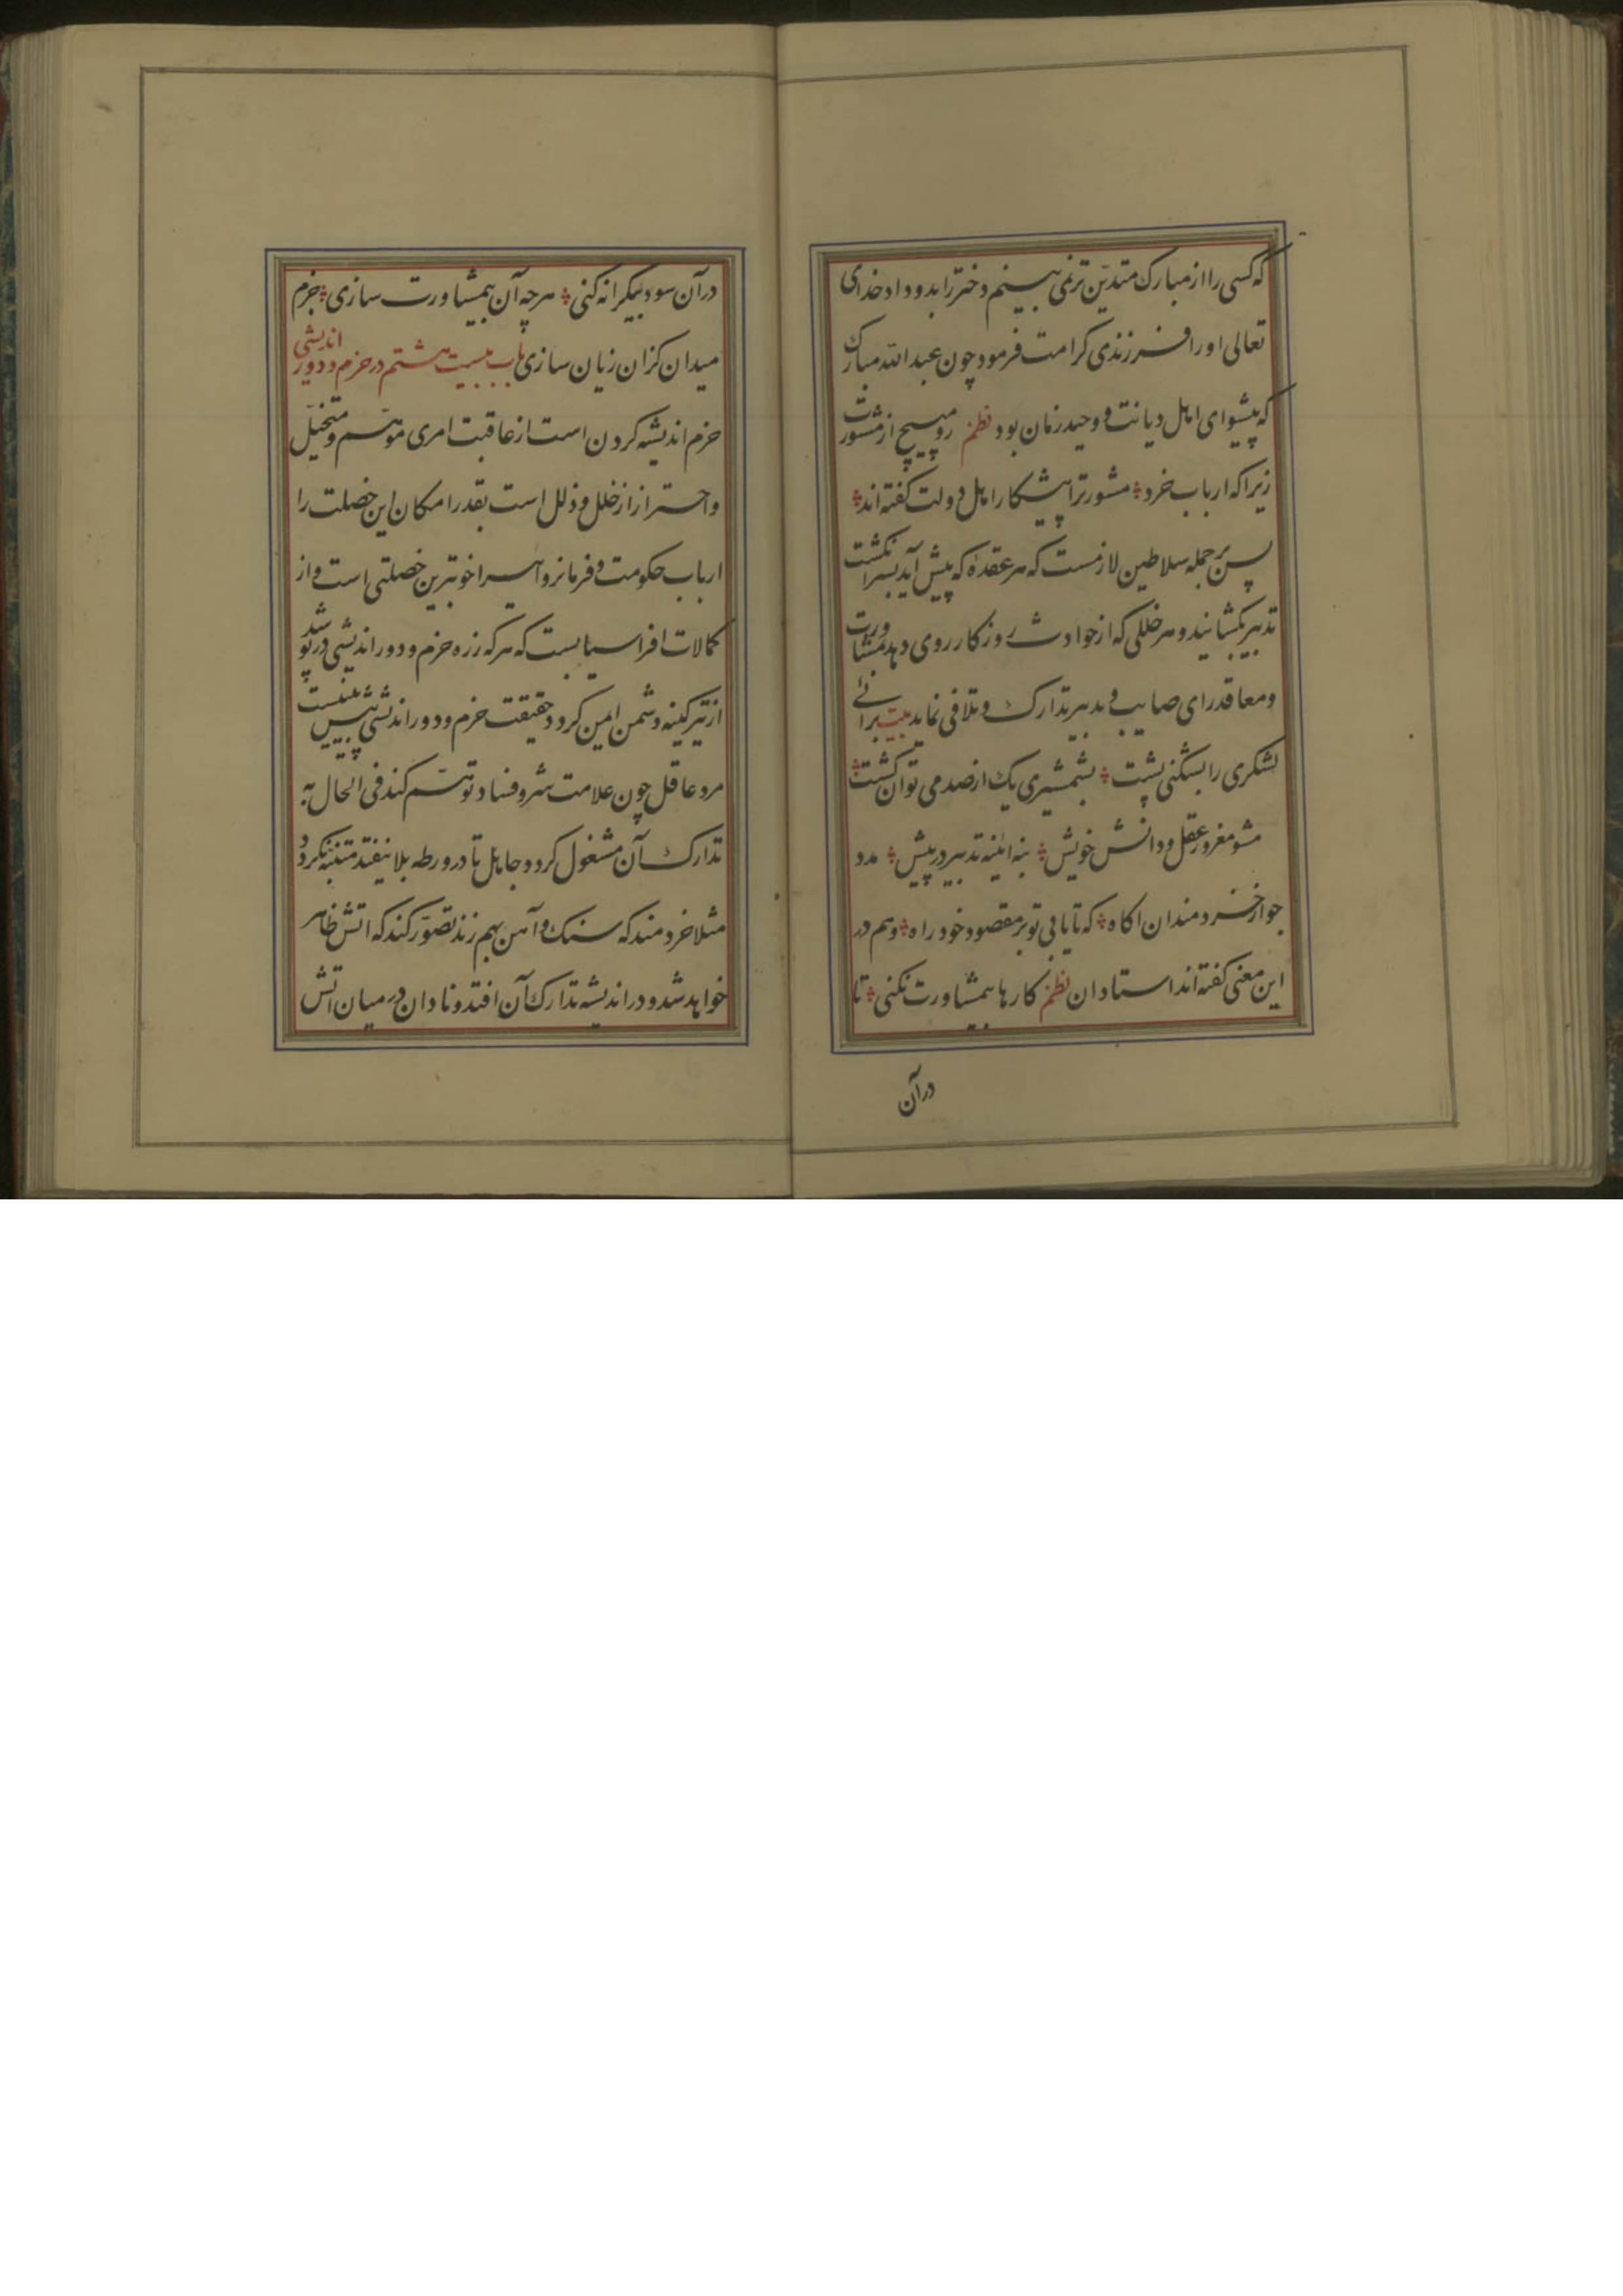 که کسی را از مبارک متدین تر نمی بینم دختر را بدو داد خدای
تعالی او را فرزندی کرامت فرمود چون عبد الله مبارک
که پیشوای اهل دیانت و وحید زمان بود نظم رو مپیچ از مشورت
زیرا که ارباب خرد ؞ مشورترا پیشکار اهل دولت گفته اند ؞
پس بر جمله سلاطین لازمست که هر عقدهٔ که پیش آید بسرانکشت
تدبیر بکشانید و هر خللی که از حوادث روزکار روی دهد بمشاورت
و معاقد رای صایب و مدبیر تدارک و تلافی نماید بیت برائے
لشکری را بشکنی پشت ؞ بشمشیری یک از صد می توان کشت ؞
مشو مغرور عقل و دانش خویش ؞ بنه ائینه تدبیر در پیش ؞ مدد
جو از خردمندان اکاه ؞ که تا یابی تو بر مقصود خود راه ؞ و هم در
این معنی گفته اند استادان نظم کارها بمشاورت نکنی ؞ تا
در آن
در آن سود بیکرانه کنی ؞ هر چه آن بمشاورت سازی ؞ جزم
میدان کزان زیان سازی باب بیست هشتم در حزم و دور اندیشی
حزم اندیشه کردن است از عاقبت امری موهّم و متخیّل
و احتراز از خلل و ذلل است بقدر امکان این خصلت را
ارباب حکومت و فرمانروا را خوبترین خصلتی است و از
کمالات افراسیابست که هر که زره حزم و دور اندیشی در پوشد
از تیر کینه دشمن ایمن کردد حقیقت حزم و دور اندیشی پیش بینیست
مرد عاقل چون علامت شر و فساد توهّم کند فی الحال به
تدارک آن مشغول کردد و جاهل تا در ورطه بلا نیفتد متنبّه نکردد
مثلا خردمند که سنک و آهن بهم زند تصوّر کند که اتش ظاهر
خواهد شد و در اندیشه تدارک آن افتد و نادان در میان اتش